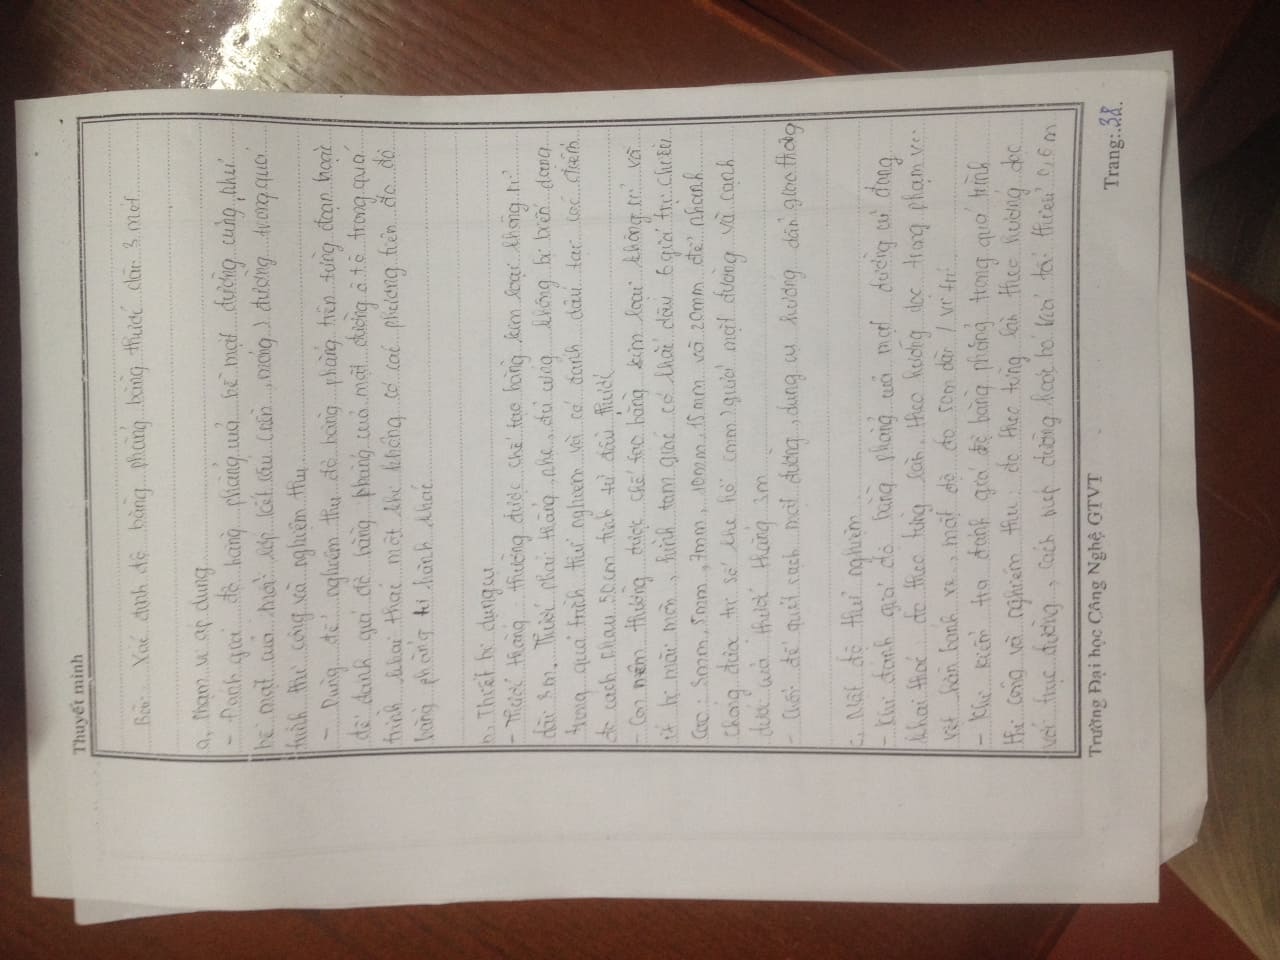 Thuyết minh
Bài: Xác định độ bằng phẳng bằng thước dài 3 mét
a, Phạm vi áp dụng
- Đánh giá độ bằng phẳng của bề mặt đường cũng như
bề mặt của mỗi lớp kết cấu (nền, móng) đường trong quá
trình thi công và nghiệm thu
- Dùng để nghiệm thu độ bằng phẳng trên từng đoạn hoặc
để đánh giá độ bằng phẳng của mặt đường ô tô trong quá
trình khai thác một khi không có các phương tiện đo độ
bằng phẳng tự hành khác
b, Thiết bị dụng cụ
- Thước thẳng thường được chế tạo bằng kim loại không rỉ
dài 3m. Thước phải thẳng, nhẹ, đủ cứng không bị biến dạng
trong quá trình thử nghiệm và có đánh dấu tại các điểm
đo cách nhau 50cm tính từ đầu thước
- Con nêm thường được chế tạo bằng kim loại không rỉ và
ít bị mài mòn, hình tam giác có khắc dấu 6 giá trị chiều
cao: 3mm, 5mm, 7mm, 10mm, 15mm và 20mm để nhanh
chóng đưa trị số khe hở (mm) giữa mặt đường và cạnh
dưới của thước thẳng 3m
- Chổi để quét sạch mặt đường, dụng cụ hướng dẫn giao thông
c, Mật độ thử nghiệm
- Khi đánh giá độ bằng phẳng của mặt đường cũ đang
khai thác: đo theo từng làn, theo hướng dọc trong phạm vi
vệt hằn bánh xe, mật độ đo 50m dài / vị trí
- Khi kiểm tra đánh giá độ bằng phẳng trong quá trình
thi công và nghiệm thu: đo theo từng làn theo hướng dọc
với trục đường, cách mép đường hoặc bó vỉa tối thiểu 0,6m
Trường Đại học Công Nghệ GTVT
Trang:.38.